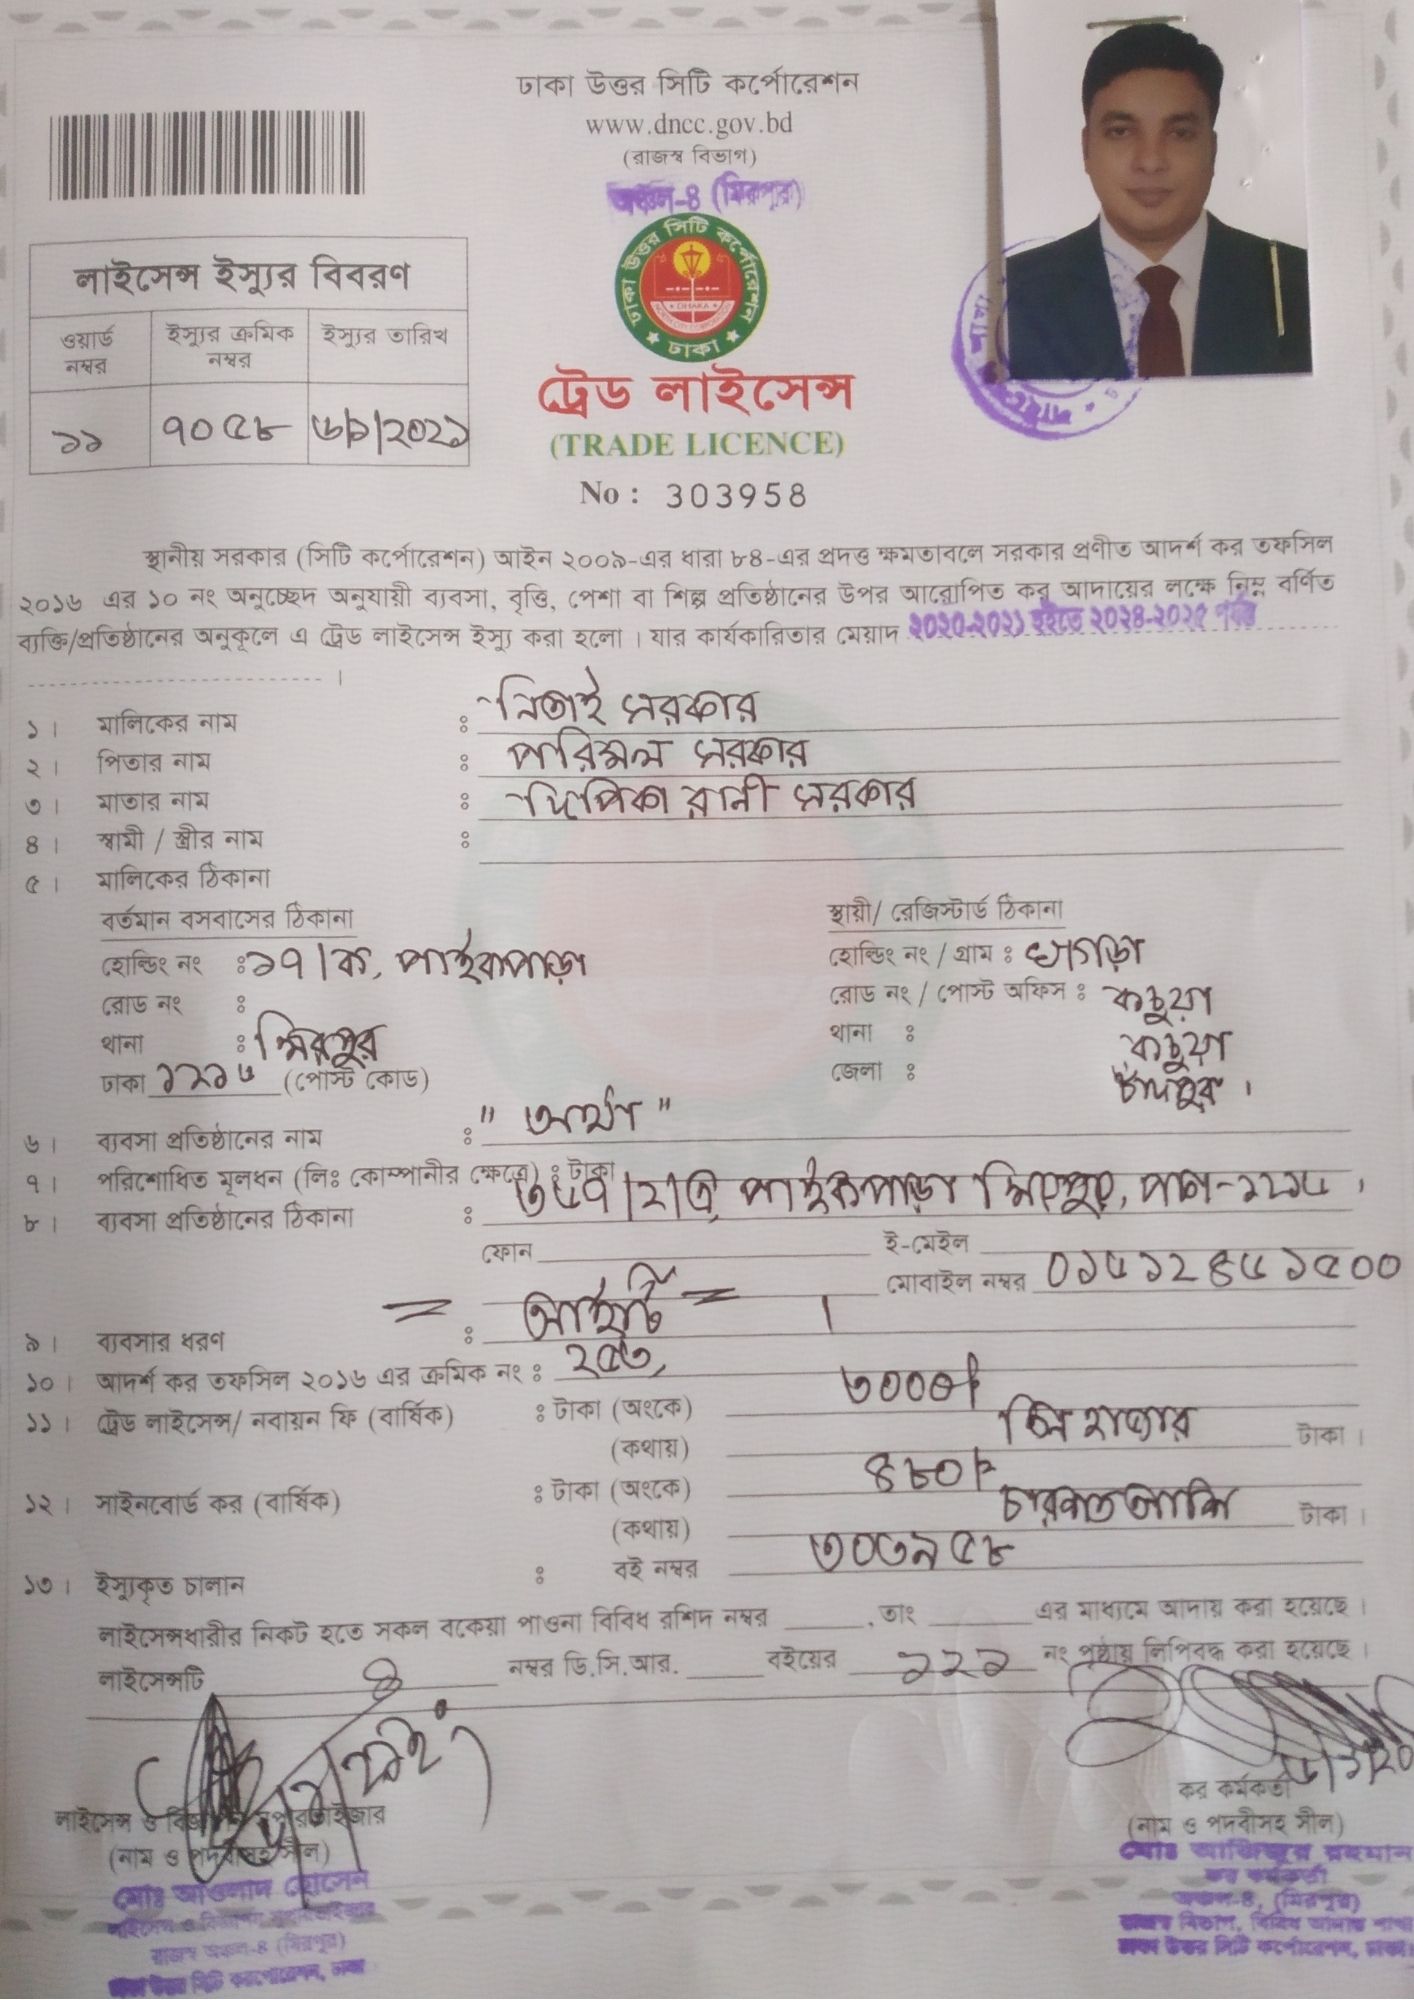 ঢাকা উত্তর সিটি কর্পোরেশন
www.dncc.gov.bd
(রাজস্ব বিভাগ)
অঞ্চল-৪ (মিরপুর)
ঢাকা উত্তর সিটি কর্পোরেশন
ঢাকা
ট্রেড লাইসেন্স
(TRADE LICENCE)
No : 303958
লাইসেন্স ইস্যুর বিবরণ
ওয়ার্ড নম্বর ইস্যুর ক্রমিক নম্বর ইস্যুর তারিখ
১১ ৭০৫৮ ৬/৯/২০২১
স্থানীয় সরকার (সিটি কর্পোরেশন) আইন ২০০৯-এর ধারা ৮৪-এর প্রদত্ত ক্ষমতাবলে সরকার প্রণীত আদর্শ কর তফসিল
২০১৬ এর ১০ নং অনুচ্ছেদ অনুযায়ী ব্যবসা, বৃত্তি, পেশা বা শিল্প প্রতিষ্ঠানের উপর আরোপিত কর আদায়ের লক্ষে নিম্ন বর্ণিত
ব্যক্তি/প্রতিষ্ঠানের অনুকূলে এ ট্রেড লাইসেন্স ইস্যু করা হলো । যার কার্যকারিতার মেয়াদ ২০২০-২০২১ হইতে ২০২৪-২০২৫ পর্যন্ত
।
১। মালিকের নাম : নিতাই সরকার
২। পিতার নাম : পরিমল সরকার
৩। মাতার নাম : দিপিকা রানী সরকার
৪। স্বামী / স্ত্রীর নাম :
৫। মালিকের ঠিকানা
বর্তমান বসবাসের ঠিকানা স্থায়ী/ রেজিস্টার্ড ঠিকানা
হোল্ডিং নং : ১৭/ক, পাইকপাড়া হোল্ডিং নং / গ্রাম :
রোড নং : রোড নং / পোস্ট অফিস : কচুয়া
থানা : মিরপুর থানা : কচুয়া
ঢাকা ১২১৬ (পোস্ট কোড) জেলা : চাঁদপুর ।
৬। ব্যবসা প্রতিষ্ঠানের নাম :
৭। পরিশোধিত মূলধন (লিঃ কোম্পানীর ক্ষেত্রে) : টাকা
৮। ব্যবসা প্রতিষ্ঠানের ঠিকানা : পাইকপাড়া মিরপুর, ঢাকা-১২১৬ ।
ফোন ই-মেইল
মোবাইল নম্বর ০১৬১২৪৬১৫০০
৯। ব্যবসার ধরণ : = আইটি = ।
১০। আদর্শ কর তফসিল ২০১৬ এর ক্রমিক নং : ২৫৩,
১১। ট্রেড লাইসেন্স/ নবায়ন ফি (বার্ষিক) : টাকা (অংকে) ৩০০০/-
(কথায়) তিন হাজার টাকা ।
১২। সাইনবোর্ড কর (বার্ষিক) : টাকা (অংকে) ৪৮০/-
(কথায়) চারশত আশি টাকা ।
১৩। ইস্যুকৃত চালান : বই নম্বর ৩০৩৯৫৮
লাইসেন্সধারীর নিকট হতে সকল বকেয়া পাওনা বিবিধ রশিদ নম্বর , তাং এর মাধ্যমে আদায় করা হয়েছে ।
লাইসেন্সটি ৪ নম্বর ডি.সি.আর. বইয়ের ১২১ নং পৃষ্ঠায় লিপিবদ্ধ করা হয়েছে ।
লাইসেন্স ও বিজ্ঞাপন সুপারভাইজার
(নাম ও পদবীসহ সীল)
মোঃ আওলাদ হোসেন
লাইসেন্স ও বিজ্ঞাপন সুপারভাইজার
রাজস্ব অঞ্চল-৪ (মিরপুর)
ঢাকা উত্তর সিটি কর্পোরেশন, ঢাকা
কর কর্মকর্তা
(নাম ও পদবীসহ সীল)
মোঃ আজিজুর রহমান
কর কর্মকর্তা
অঞ্চল-৪, (মিরপুর)
রাজস্ব বিভাগ, বিবিধ আদায় শাখা
ঢাকা উত্তর সিটি কর্পোরেশন, ঢাকা।